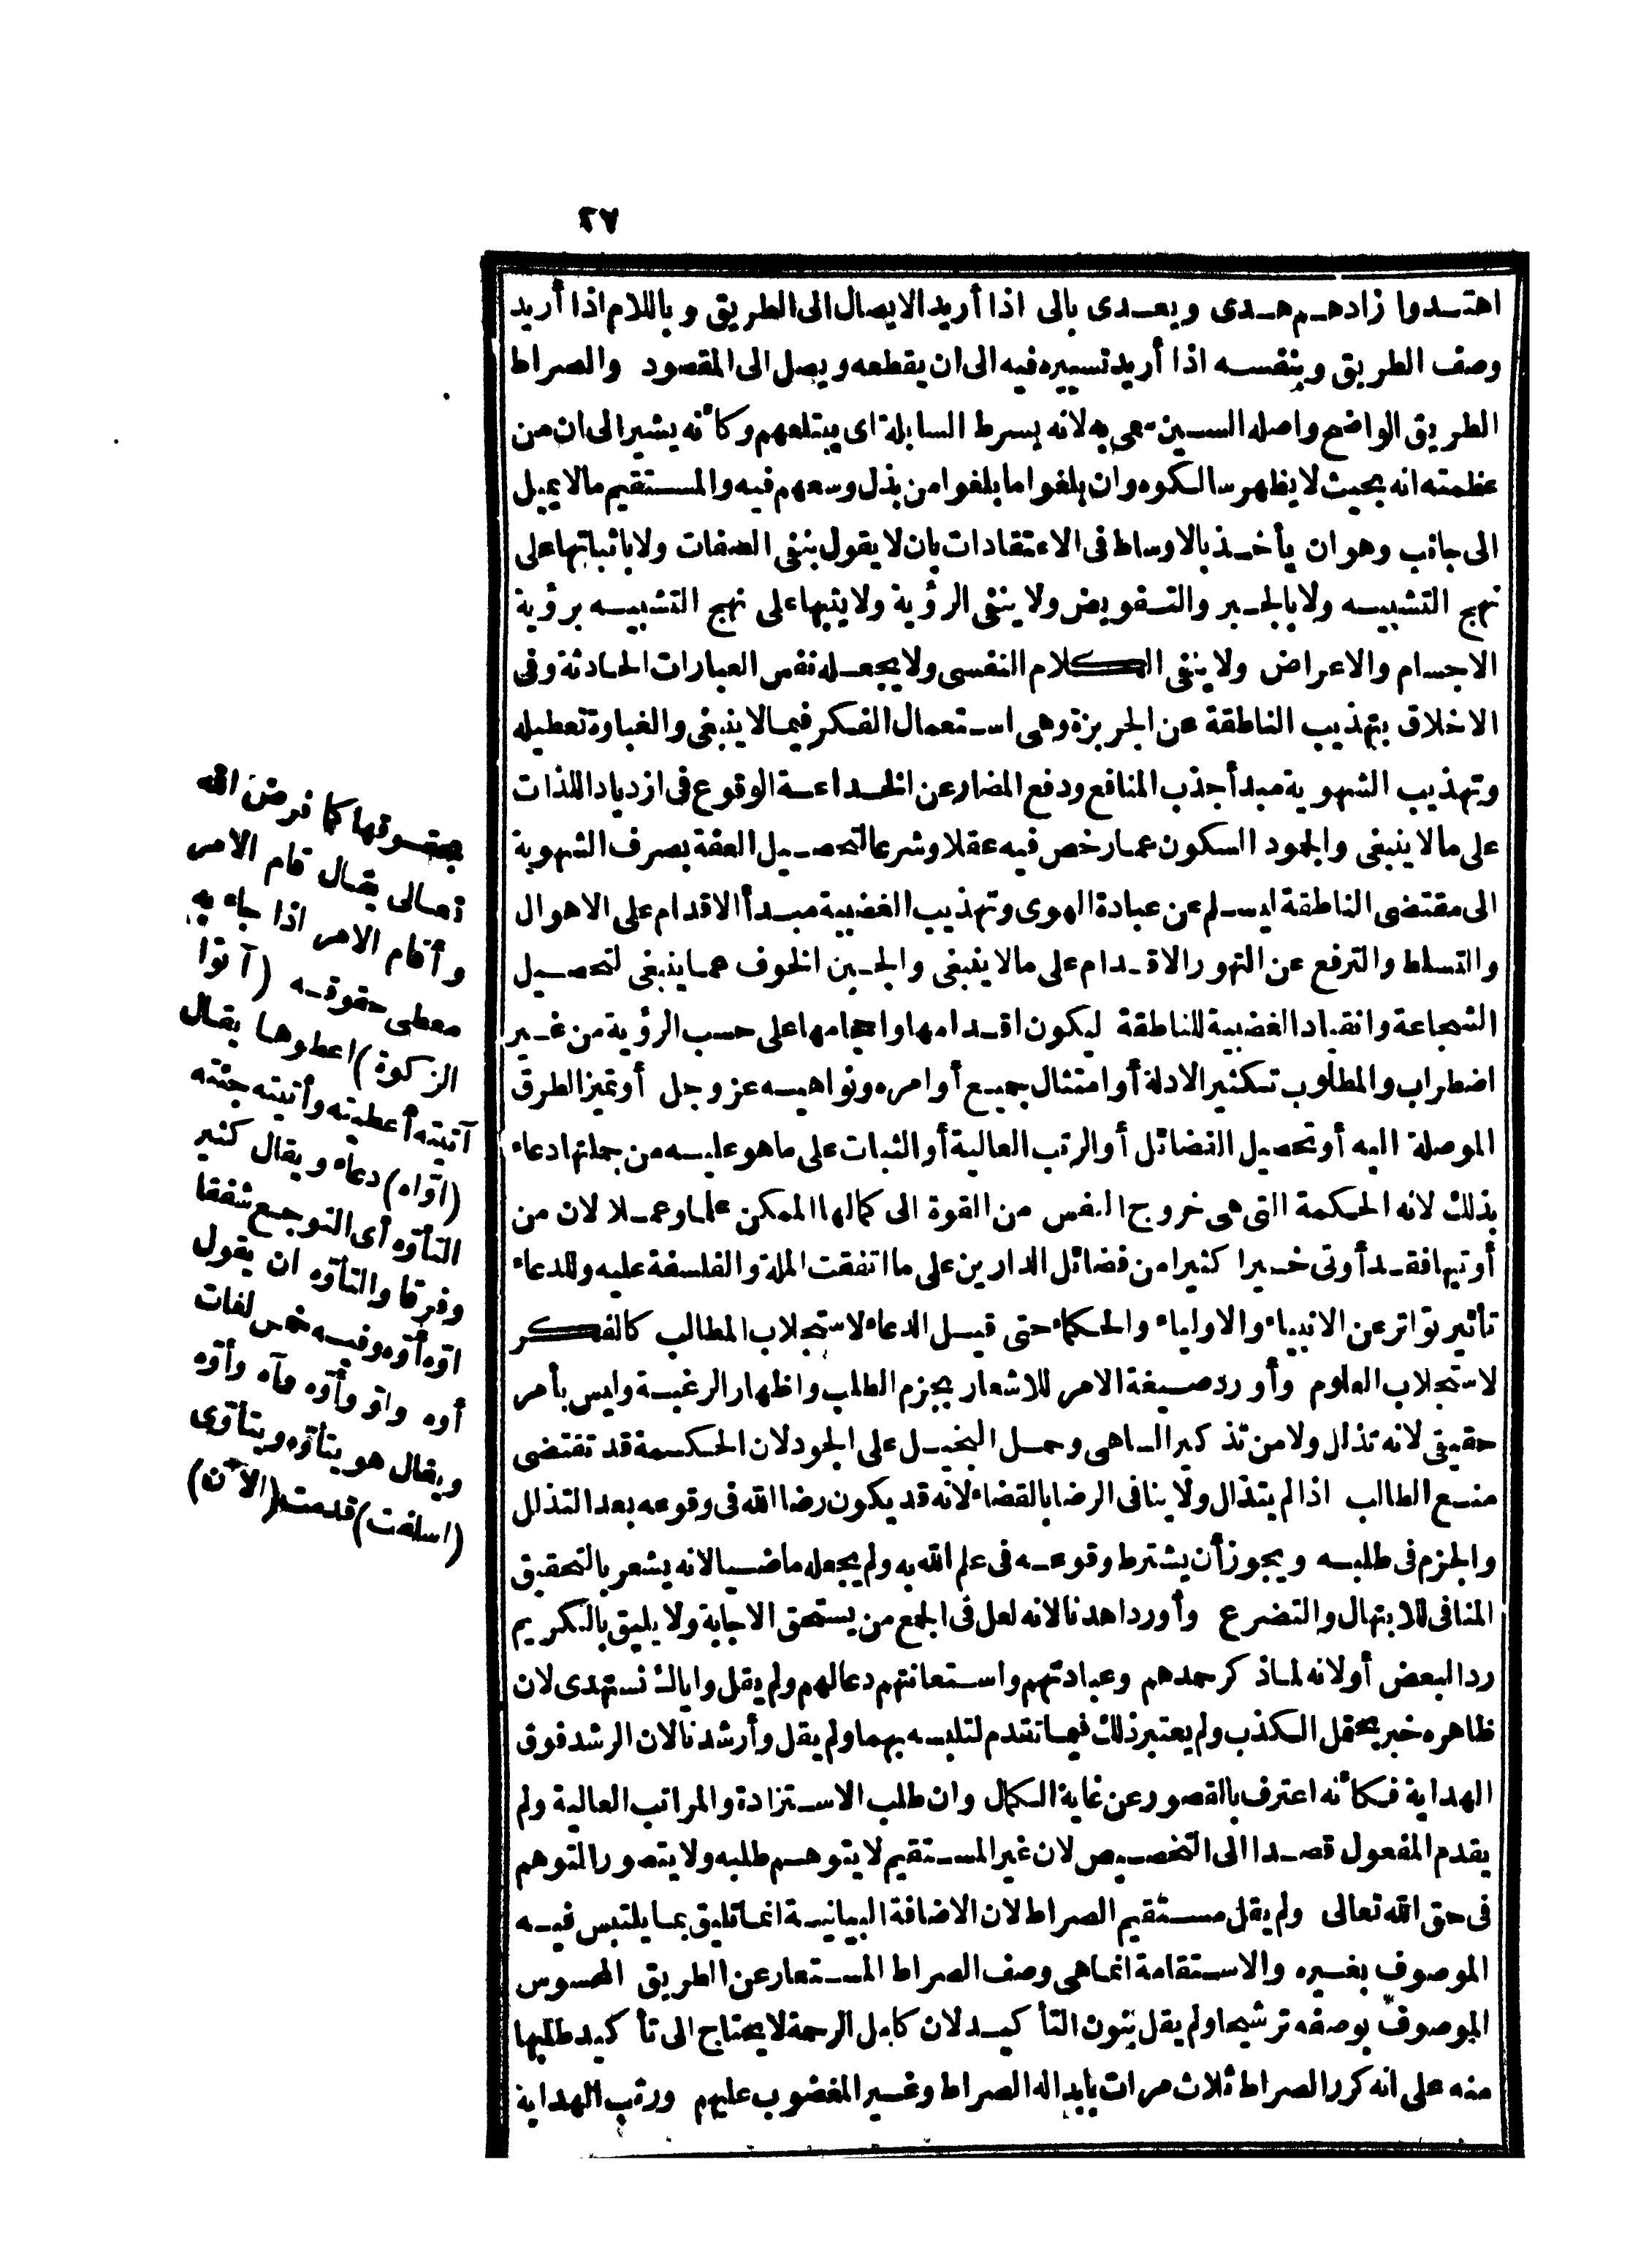 ٢٧
اهتدوا زادهم هدى ويعدى بالى اذا أريد الايصال الى الطريق وباللام اذا أريد
وصف الطريق وبنفسه اذا أريد تسييره فيه الى ان يقطعه ويصل الى المقصود والصراط
الطريق الواضح واصله السين سمى به لانه يسرط السابلة اى يبتلعهم وكأنه يشير الى ان من
عظمته انه بحيث لا يظهر سالكوه وان بلغوا ما بلغوا من بذل وسعهم فيه والمستقيم مالا يميل
الى جانب وهو ان يأخذ بالاوساط فى الاعتقادات بان لا يقول بنفى الصفات ولا باثباتها على
نهج التشبيه ولا بالجبر والتفويض ولا ينفى الرؤية ولا يثبها على نهج التشبيه برؤية
الاجسام والاعراض ولا ينفى الكلام النفسى ولا يجعله نفس العبارات الحادثة وفى
الاخلاق بتهذيب الناطقة عن الجربزة وهى استعمال الفكر فيما لا ينبغى والغباوة تعطيله
وتهذيب الشهوية مبدأ جذب المنافع ودفع المضار عن الخداعة الوقوع فى ازدياد اللذات
على مالا ينبغى والجمود السكون عما رخص فيه عقلا وشرعا لتحصيل العفة بصرف الشهوية
الى مقتضى الناطقة ليسلم عن عبادة الهوى وتهذيب الغضبية مبدأ الاقدام على الاهوال
والتسلط والترفع عن التهور الاقدام على مالا ينبغى والجبن الخوف عما ينبغى لتحصيل
الشجاعة وانقياد الغضبية للناطقة ليكون اقدامها واحجامها على حسب الرؤية من غير
اضطراب والمطلوب تكثير الادلة أو امتثال جميع أوامره ونواهيه عز وجل أو تميز الطرق
الموصلة اليه أو تحصيل الفضائل أو الرتب العالية أو الثبات على ما هو عليه من جملتها دعاء
بذلك لانه الحكمة التى هى خروج النفس من القوة الى كمالها الممكن علما وعملا لان من
أوتيها فقد أوتى خيرا كثيرا من فضائل الدارين على ما اتفقت الملة والفلسفة عليه وللدعاء
تأثير تواتر عن الانبياء والاولياء والحكماء حتى قيل الدعاء لاستجلاب المطالب كالفكر
لاستجلاب العلوم وأورد صيغة الامر للاشعار بجزم الطلب واظهار الرغبة وليس بأمر
حقيقى لانه تذلل ولا من تذكير الساهى وحمل البخيل على الجود لان الحكمة قد تقتضى
منع الطالب اذا لم يتذلل ولا ينافى الرضا بالقضاء لانه قد يكون رضا الله فى وقوعه بعد التذلل
والجزم فى طلبه ويجوز أن يشترط وقوعه فى علم الله به ولم يجعله ماضيا لانه يشعر بالتحقيق
المنافى للابتهال والتضرع وأورد اهدنا لانه لعل فى الجمع من يستحق الاجابة ولا يليق بالكريم
رد البعض أو لانه لما ذكر حمدهم وعبادتهم واستعانتهم دعا لهم ولم يقل واياك نستهدى لان
ظاهره خبر يحتمل الكذب ولم يعتبر ذلك فيما تقدم لتلبسه بهما ولم يقل وأرشدنا لان الرشد فوق
الهداية فكأنه اعترف بالقصور عن غاية الكمال وان طلب الاستزادة والمراتب العالية ولم
يقدم المفعول قصدا الى التخصيص لان غير المستقيم لا يتوهم طلبه ولا يتصور التوهم
فى حق الله تعالى ولم يقل مستقيم الصراط لان الاضافة البيانية انما تليق بما يلتبس فيه
الموصوف بغيره والاستقامة انما هى وصف الصراط المستعار عن الطريق المحسوس
الموصوف بوصفه ترشيحا ولم يقل بنون التأكيد لان كامل الرحمة لا يحتاج الى تأكيد طلبها
منه على انه كرر الصراط ثلاث مرات بابداله الصراط وغير المغضوب عليهم ورتب الهداية
بحقوقها كما فرض الله
تعالى يقال قام الامر
وأقام الامر اذا جاء به
معطى حقوقه (آتوا
الزكوة) اعطوها يقال
آتيته أعطيته وأتيته جئته
(اوّاه) دعاء ويقال كثير
التأوّه أى التوجع شفقا
وفرقا والتأوّه ان يقول
اوّه أوّه وفيه خمس لغات
أوه واوّ وأوّه وآه وأوّه
ويقال هو يتأوّه ويتأوّى
(اسلفت) قدمت (الآن)